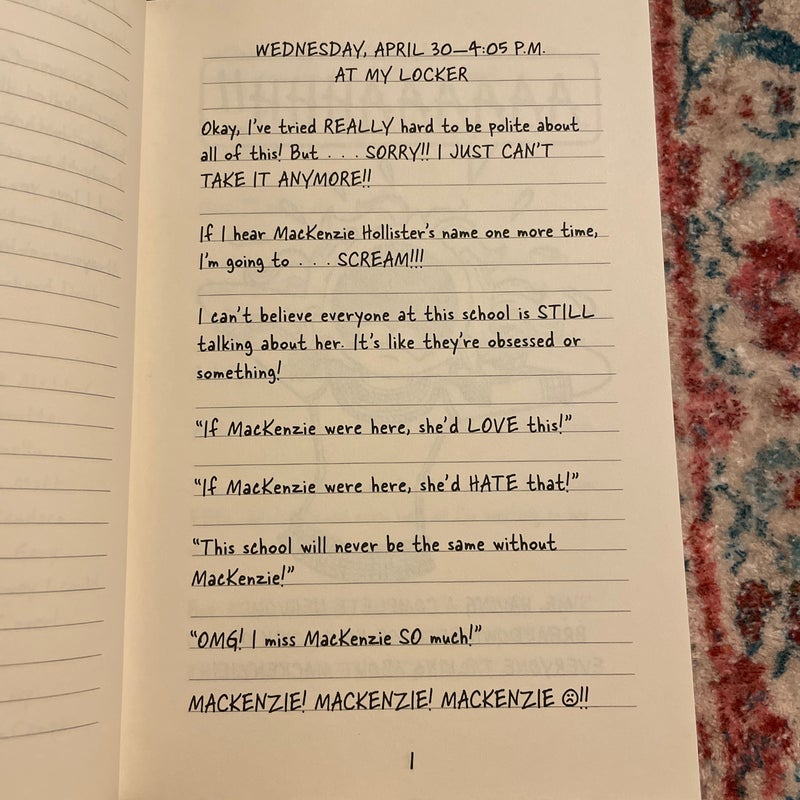 WEDNESDAY, APRIL 30—4:05 P.M.
AT MY LOCKER
Okay, I've tried REALLY hard to be polite about
all of this! But . . . SORRY!! I JUST CAN'T
TAKE IT ANYMORE!!
If I hear MacKenzie Hollister's name one more time,
I'm going to . . . SCREAM!!!
I can't believe everyone at this school is STILL
talking about her. It's like they're obsessed or
something!
“If MacKenzie were here, she'd LOVE this!”
“If MacKenzie were here, she'd HATE that!”
“This school will never be the same without
MacKenzie!”
“OMG! I miss MacKenzie SO much!”
MACKENZIE! MACKENZIE! MACKENZIE ☹!!
1